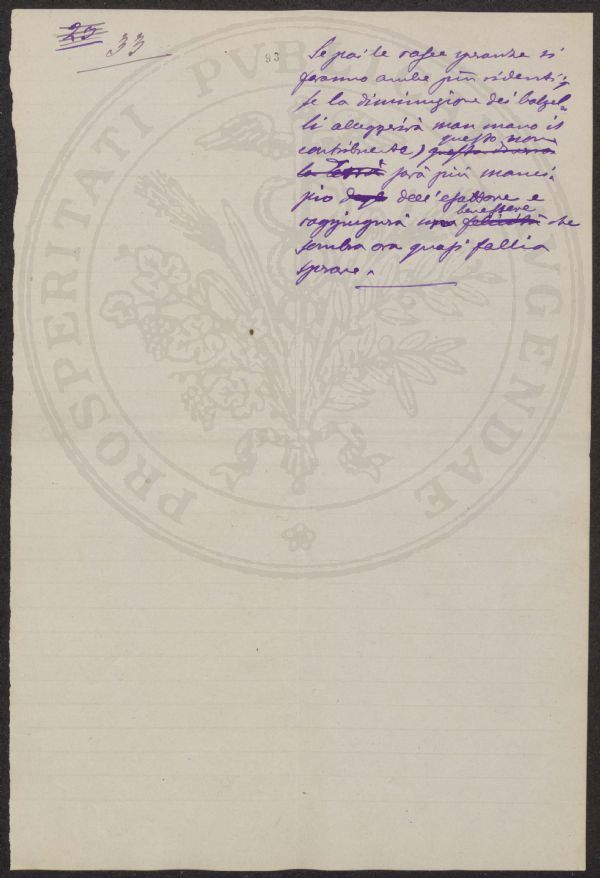 23
33
93
Se poi le rosee speranze si
faranno anche più ridenti, e
se la diminuzione dei balzel-
li alleggerirà man mano il
questo non
contribuente, questa
la Terra sarà più manci-
pio degli dell'esattore e
benessere
raggiungerà una felicità che
sembra ora quasi follia
sperare.
PROSPERITATI PUBLICAE AUGENDAE